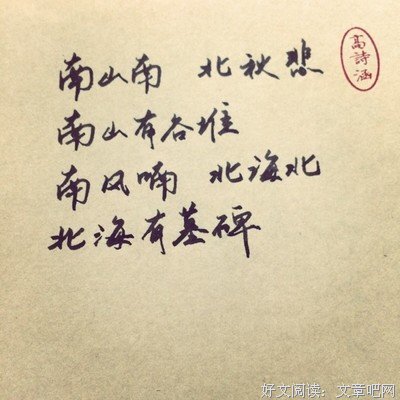 南山南 北秋悲
南山有谷堆
南风喃 北海北
北海有墓碑
高詩涵
好文阅读：文章吧网